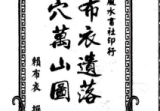 慶水書社印行
布衣遺落
穴萬山圖
賴布衣 撰